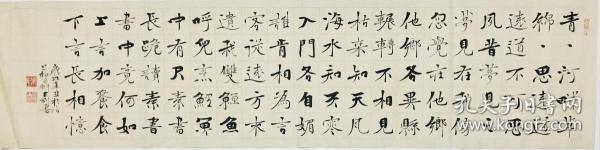 青〻河畔艸
綿〻思遠道
遠道不可思
夙昔夢見之
夢見在我傍
忽覺在他鄉
他鄉各異縣
輾轉不相見
枯桑知天風
海水知天寒
入門各自媚
誰肯相為言
客從遠方來
遺我雙鯉魚
呼兒烹鯉魚
中有尺素書
長跪讀素書
書中竟何如
上言加餐食
下言長相憶